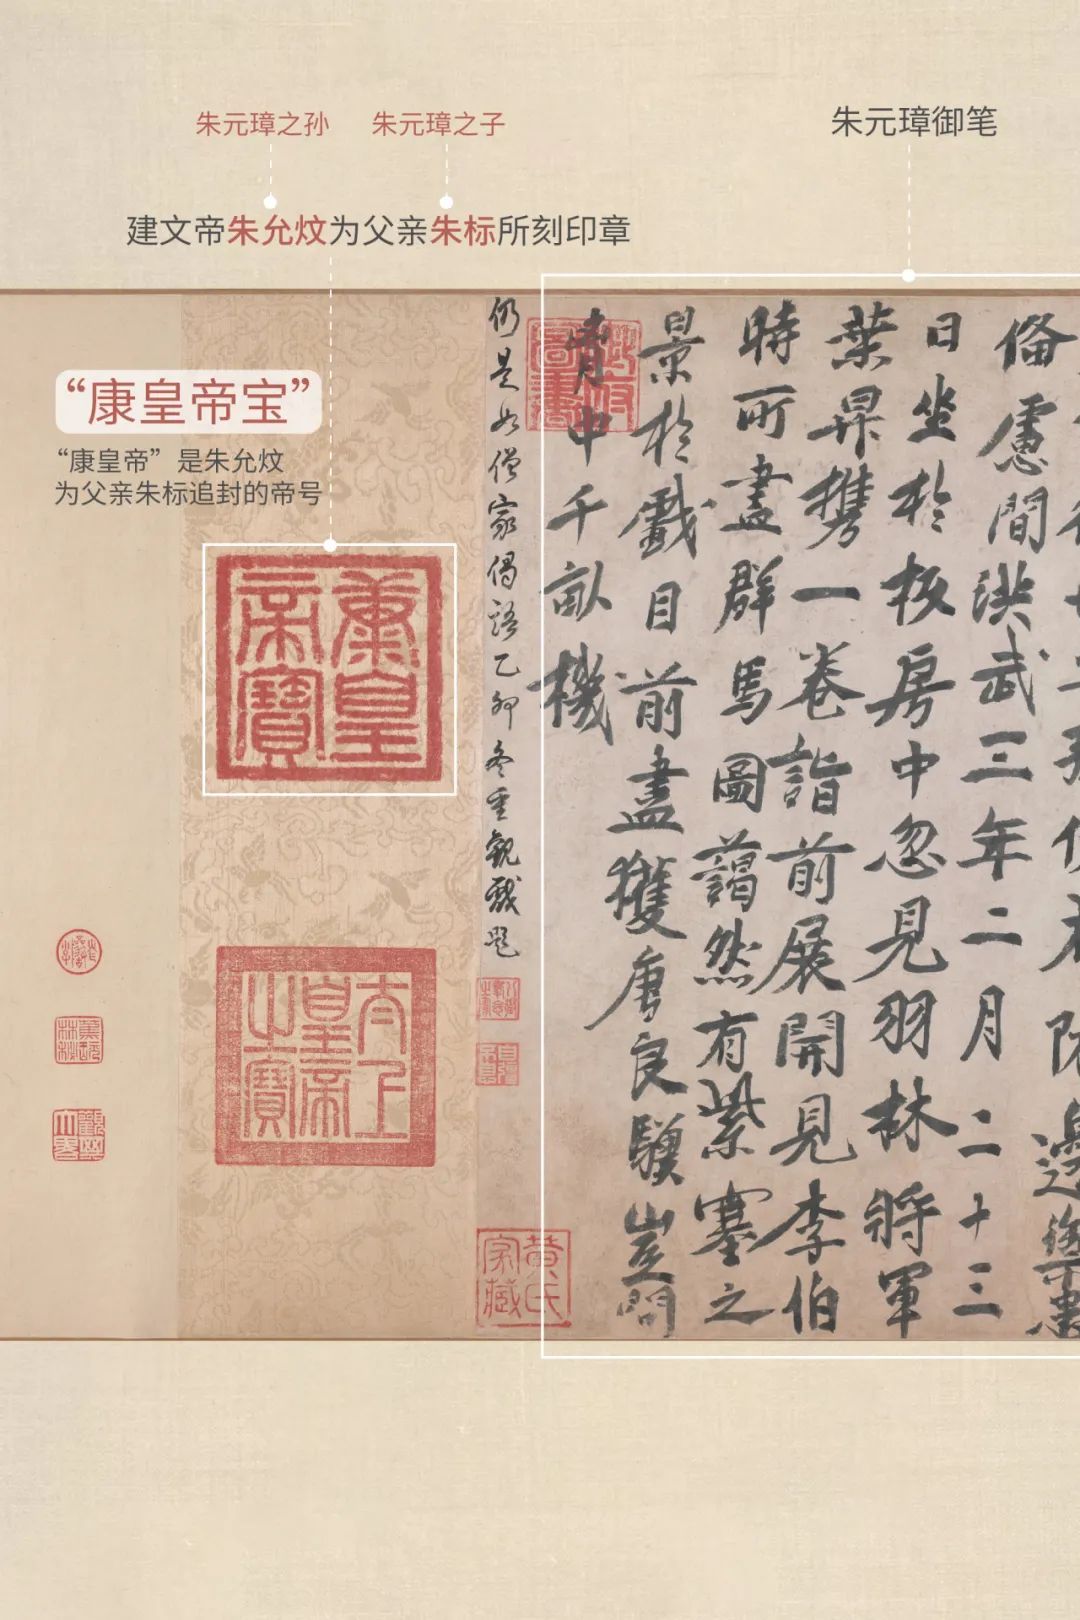 朱元璋之孙
朱元璋之子
朱元璋御笔
建文帝朱允炆为父亲朱标所刻印章
“康皇帝宝”
“康皇帝”是朱允炆
为父亲朱标追封的帝号
俻慮間洪武三年二月二十三
日坐於板房中忽見羽林將軍
葉昇携一卷詣前展開見李伯
時所畫群馬圖藹然有紫塞之
景於戲目前盡獲唐良驥豈問
胄中千畝機
仍是如僧家偈語乙卯冬重觀戲題
康皇帝寶
太上皇帝之寶
黄氏家藏